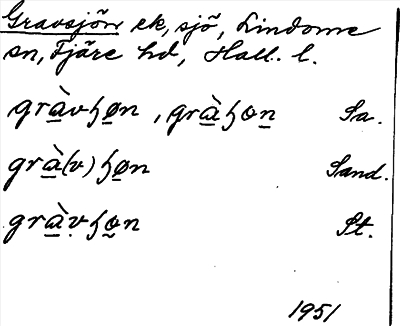 Gravsjön ek, sjö, Lindome
sn, Fjäre hd, Hall. l.
gràvɧøn, gràɧøn Sa.
grà(v)ɧøn Sand.
gràvɧøn St.
1951